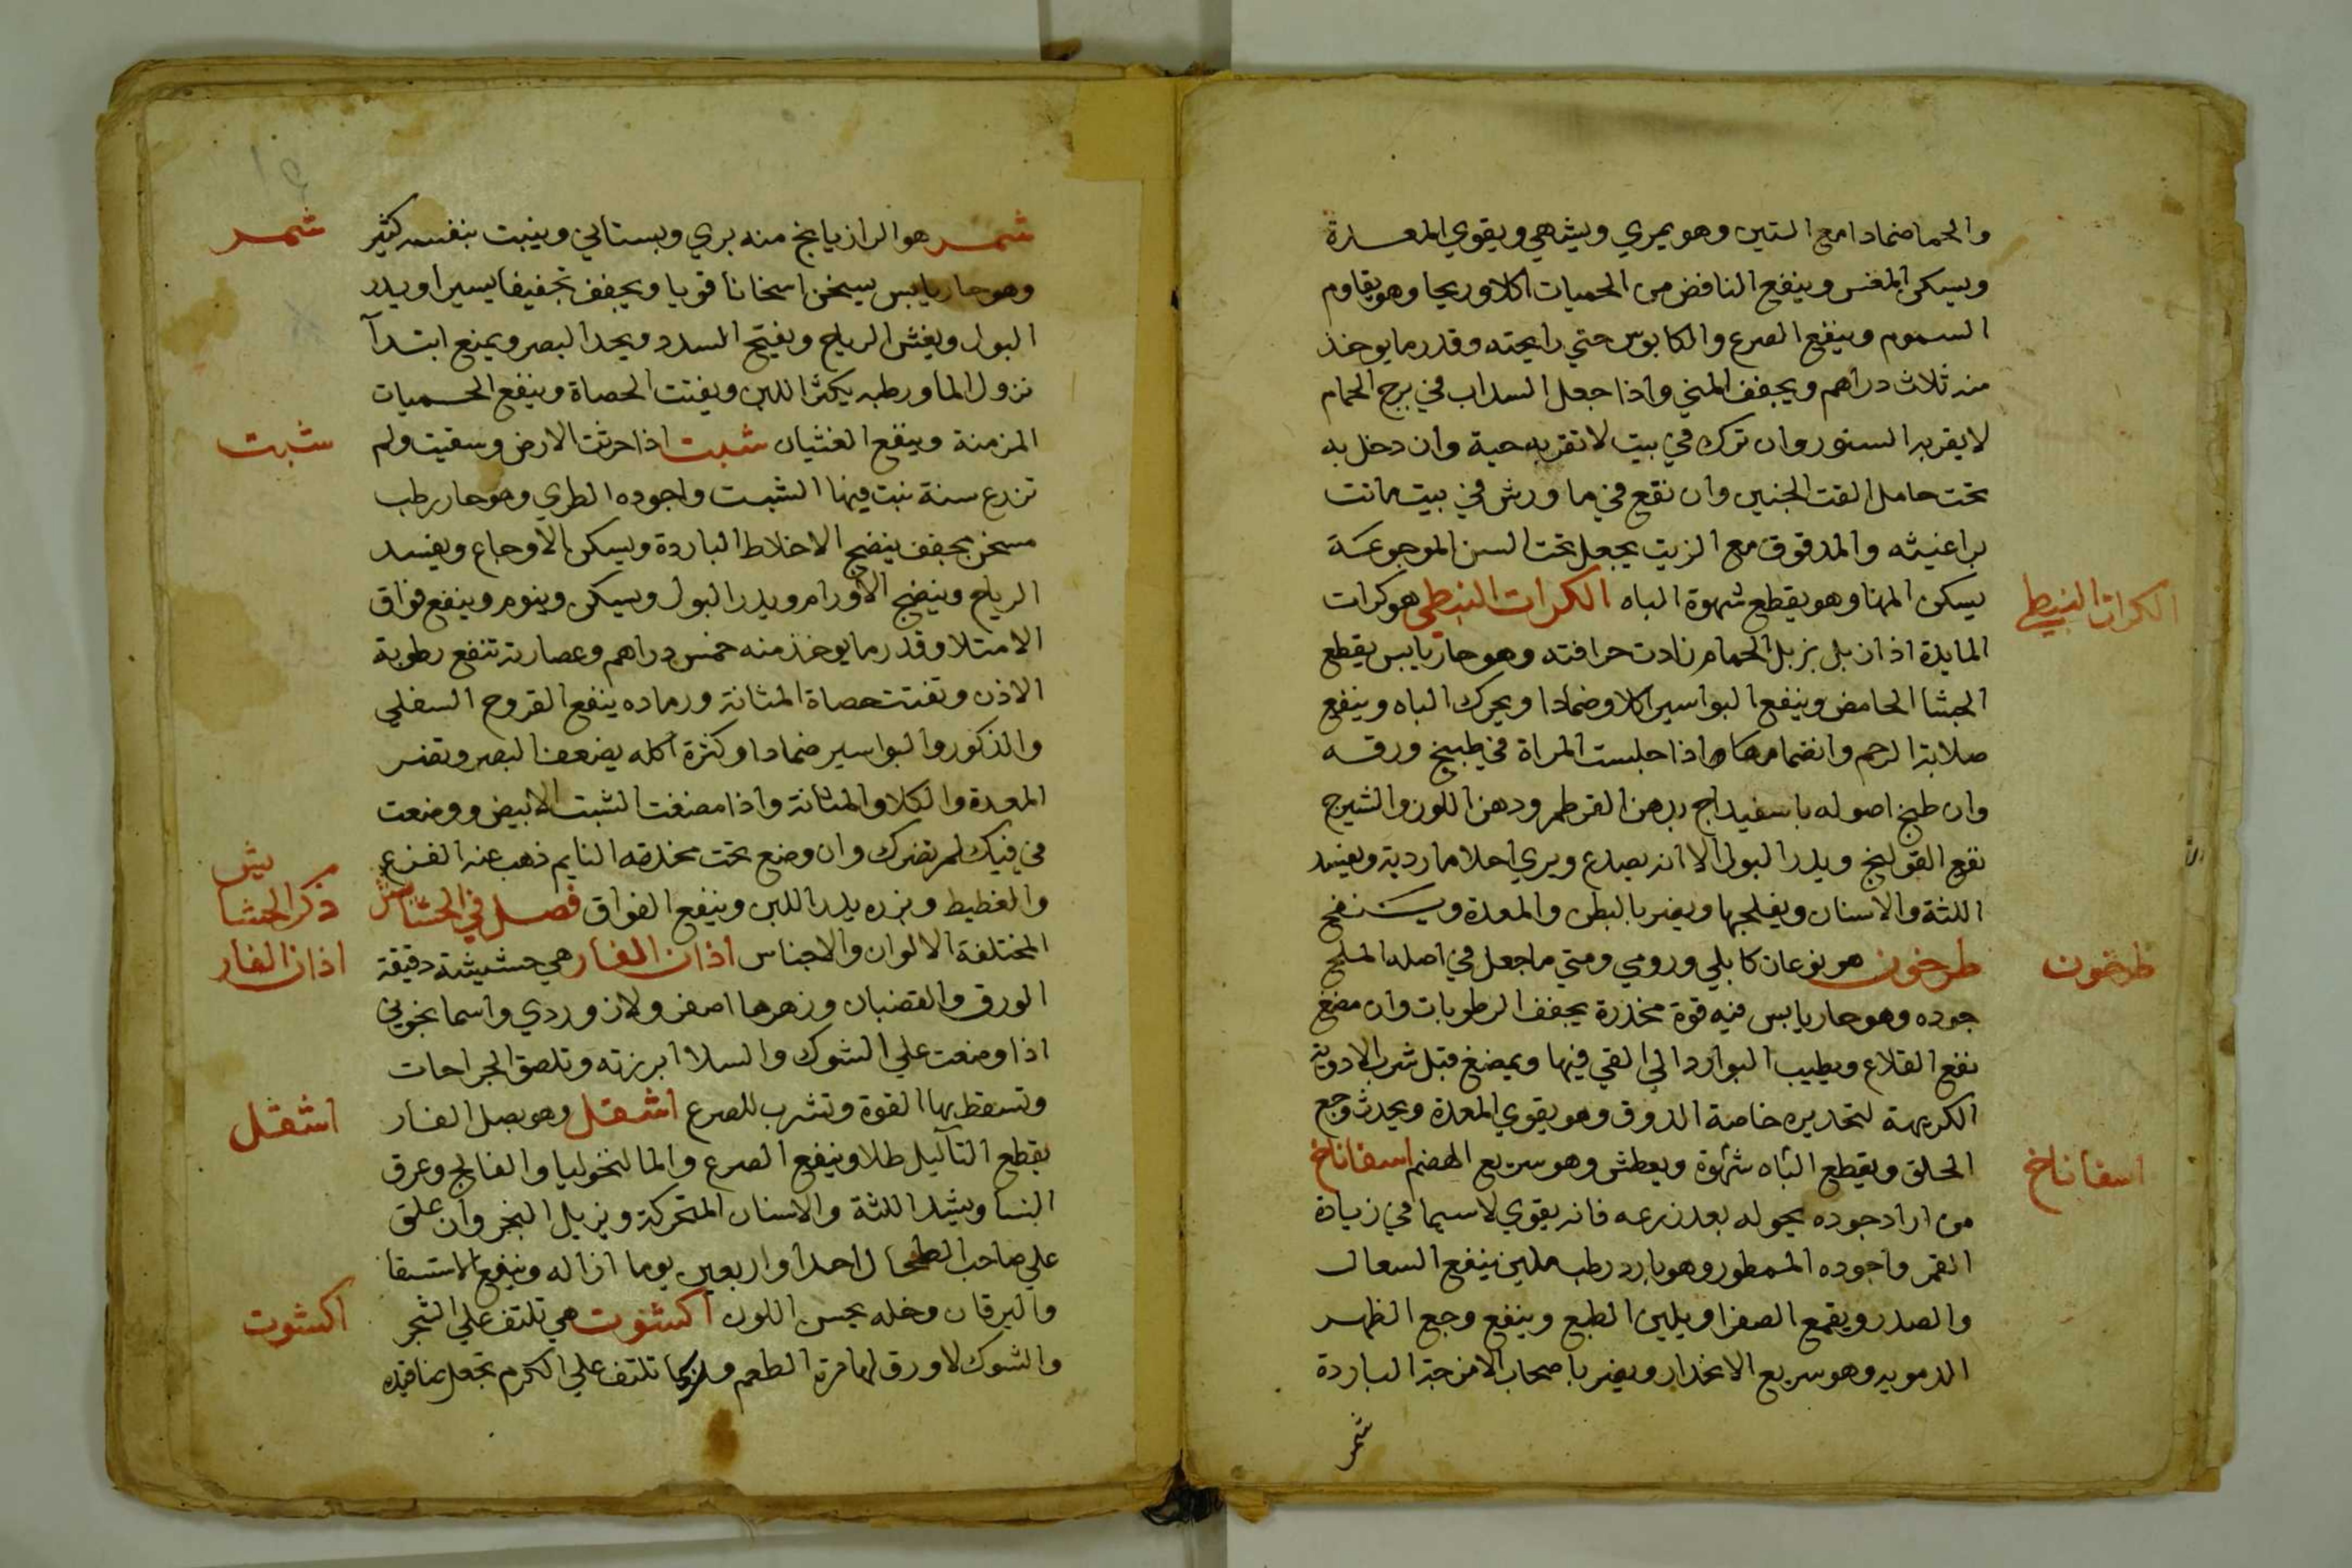 والحما ضمادا مع التين وهو يمري ويشهي ويقوي المعدة
ويسكن المغس وينفع النافض من الحميات اكلا وريحا وهو يقاوم
السموم وينفع الصرع والكابوس حتي رايحته وقدر ما يوخذ
منه ثلاث دراهم ويجفف المني واذا جعل السداب في برج الحمام
لا يقربه السنور وان ترك في بيت لا تقربه حية وان دخل به
تحت حامل القت الجنين وان نقع في ما ورش في بيت ماتت
براغيثه والمدقوق مع الزيت يجعل تحت السن الموجوعة
يسكن المها وهو يقطع شهوة الباه الكرات النبطي هو كرات
الكرات النبطي
المايدة اذا زبل بزبل الحمام زادت حرافته وهو حار يابس يقطع
الجشا الحامض وينفع البواسير اكلا وضمادا ويحرك الباه وينفع
صلابة الرحم وانضمامها واذا جلست المراة في طبيخ ورقه
وان طبخ اصوله باسفيداج بدهن القرطم ودهن اللوز والشيرج
نفع القولنج ويدر البول الا انه يصدع ويري احلاما ردية ويفسد
اللثة والاسنان ويفلجها ويضر بالبطن والمعدة ويستنضج
طرخون هو نوعان كابلي ورومي ومتي ما جعل في اصله الملح
طرخون
جوده وهو حار يابس فيه قوة مخدرة يجفف الرطوبات وان مضغ
نفع القلاع ويطيب البوارد الي القي فيها ويمضغ قبل شرب الادوية
الكريهة لتخديره خاصة الذوق وهو يقوي المعدة ويحدث وجع
الحلق ويقطع الباه شهوة ويعطش وهو سريع الهضم اسفاناخ
اسفاناخ
من اراد جوده يحوله بعد زرعه فانه يقوي لاسيما في زيادة
القمر واجوده الممطور وهو بارد رطب ملين ينفع السعال
والصدر ويقمع الصفرا ويلين الطبع وينفع وجع الظهر
الدمويه وهو سريع الانحدار ويضر باصحاب الامزجة الباردة
شمر
شمر هو الرازيانج منه بري وبستاني وينبت بنفسه كثير
شمر
وهو حار يابس يسخن اسخانا قويا ويجفف تجفيفا يسيرا ويدر
البول ويفش الرياح ويفتح السدد ويحد البصر ويمنع ابتدآ
نزول الما ورطبه يكثر اللبن ويفتت الحصاة وينفع الحميات
المزمنة وينفع الغثيان شبت اذا حرثت الارض وسقيت ولم
شبت
تزرع سنة نبت فيها الشبت واجوده الطري وهو حار رطب
مسخن مجفف ينضج الاخلاط الباردة ويسكن الاوجاع ويفسد
الرياح وينضج الاورام ويدر البول ويسكن وينوم وينفع فواق
الامتلا وقدر ما يوخذ منه خمس دراهم وعصارته تنفع رطوبة
الاذن وتفتت حصاة المثانة ورماده ينفع القروح السفلي
والذكور والبواسير ضمادا وكثرة اكله يضعف البصر وتضر
المعدة والكلا والمثانة واذا مضغت الشبت الابيض ووضعت
في فيك لم تضرك وان وضع تحت مخدة النايم ذهب عنه الفزع
والغطيط وبزره يدر اللبن وينفع الفواق فصل في الحشايش
ذكر الحشايش
المختلفة الالوان والاجناس اذان الفار هي حشيشة دقيقة
اذان الفار
الورق والقضبان وزهرها اصفر ولازوردي واسمانجوني
اذا وضعت علي الشوك والسلا ابرزته وتلصق الجراحات
وتسقط بها القوة وتشرب للصرع اشقل وهو بصل الفار
اشقل
يقطع الثآليل طلا وينفع الصرع والمالنخوليا والفالج وعرق
النسا ويشد اللثة والاسنان المتحركة ويزيل البخر وان علق
علي صاحب الطحال احدا واربعين يوما ازاله وينفع الاستسقا
واليرقان وخله يحسن اللون اكشوت هي تلتف علي الشجر
اكشوت
والشوك لا ورق لها مرة الطعم وربما تلتف علي الكرم تجعل عناقيده